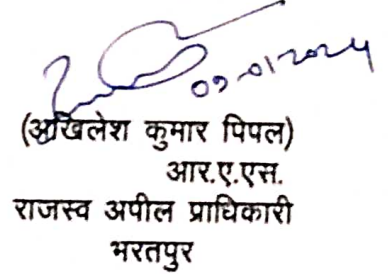 09-01-2024
(अखिलेश कुमार पिपल)
आर.ए.एस.
राजस्व अपील प्राधिकारी
भरतपुर